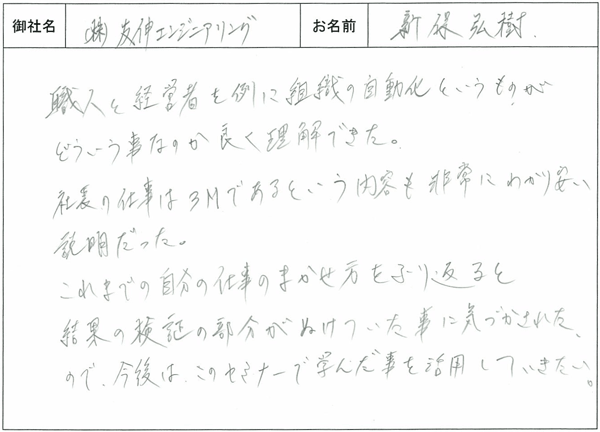 御社名 (株)友伸エンジニアリング お名前 新保弘樹.
職人と経営者を例に組織の自動化というものが
どういう事なのか良く理解できた。
社長の仕事は3Mであるという内容も非常にわかり安い
説明だった。
これまでの自分の仕事のまかせ方をふり返ると
結果の検証の部分がぬけていた事に気づかされた、
ので、今後は、このセミナーで学んだ事を活用していきたい。